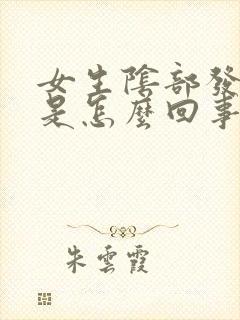 女生陰部發
是怎麼回事
朱雲霞